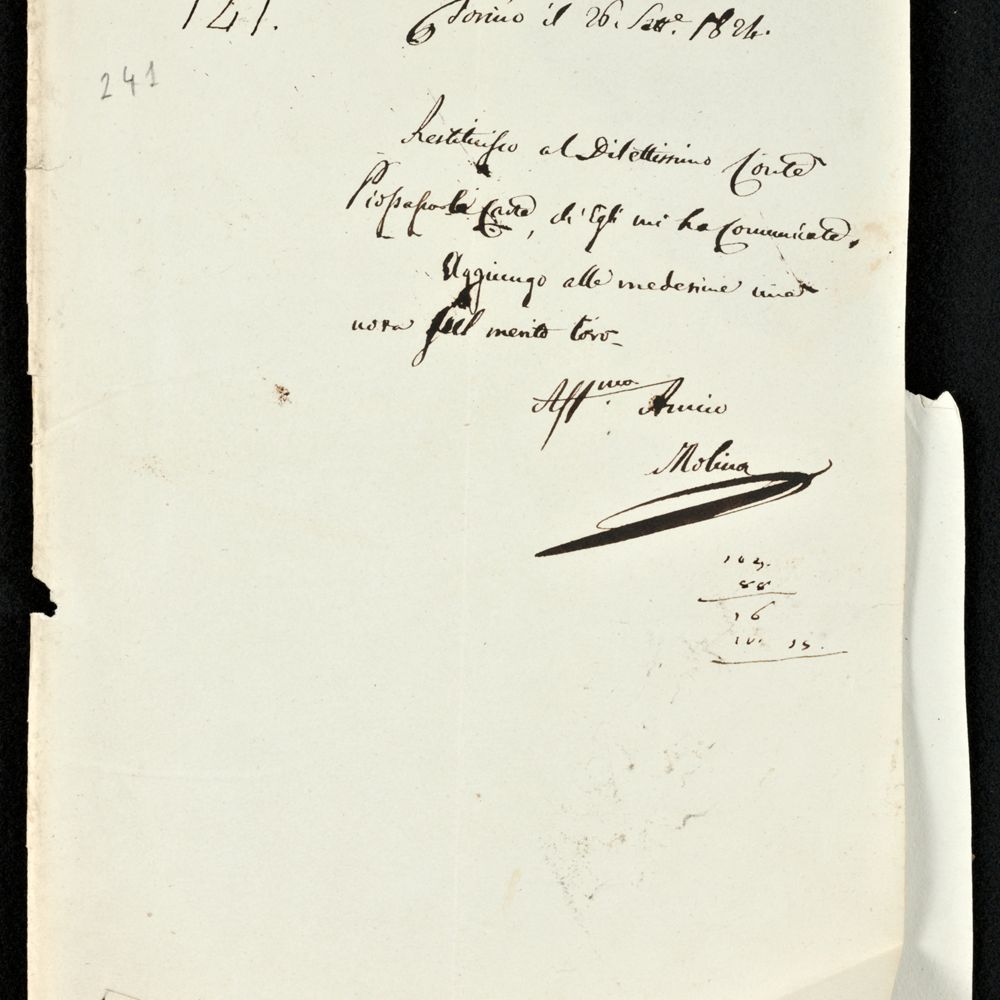 141.
Torino il 26. Sett.e 1824.
241
Restituisco al Dilettissimo Conte
Piossasco le Carte, ch'Egli mi ha comunicate.
Aggiungo alle medesime una
nota sul merito loro_
Aff.mo Amico
Molina
88
16